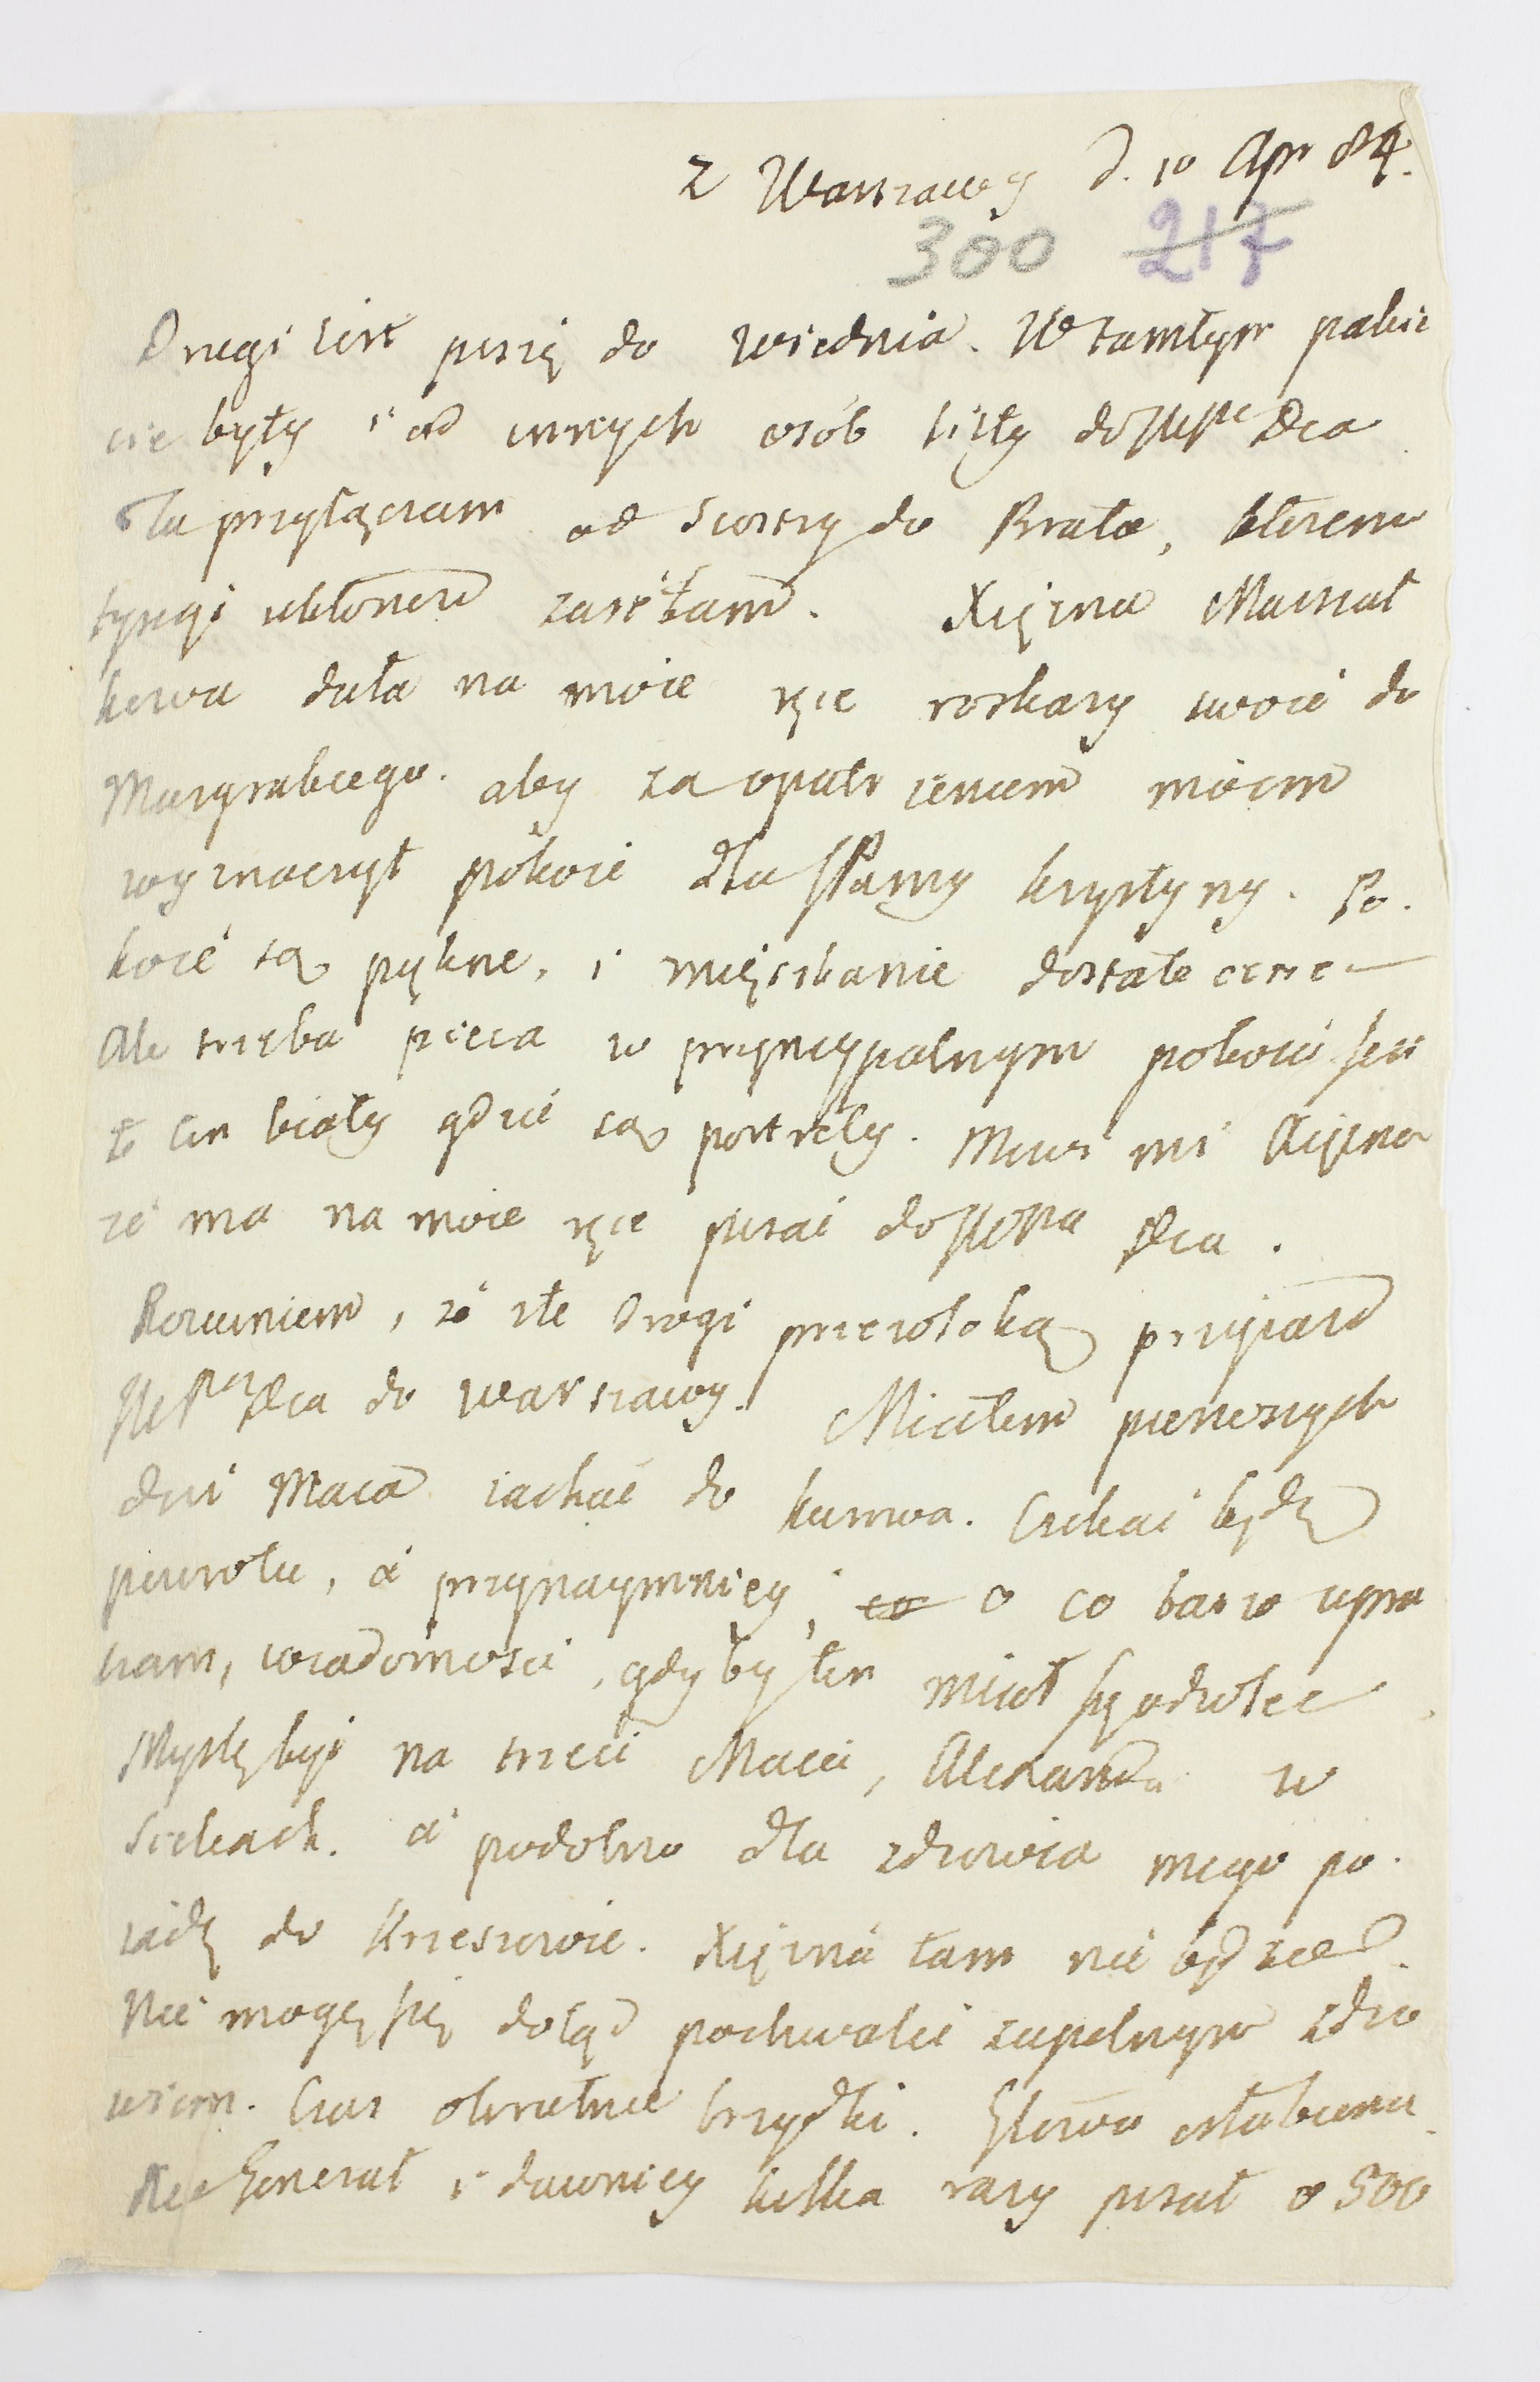 z Warszawy d. 10 Apr 84.
300 217
Drugi list piszę do Wiednia. W tamtym pakie
cie były i od innych osób listy do JWPe Dca
Tu przyłączam od siostry do Brata, ktoremu
tysięgi ukłonow zasełam. Xiężna Marszał
kowa dała na moie ręce roskazy swoie do
Margrabiego. aby za opatrzeniem moiem
wyznaczył pokoie dla JPanny krystyny. Po.
koie są pękne, i mięszkanie dostateczne —
Ale trzeba pieca w pryncypalnym pokoiu jest
to ten biały gdzie są portrety. Mowi mi Xiężna
że ma na moie ręce pisać do JWPna Dca.
Rozumiem, że złe drogi przewloką przyiazd
JWPna Dca do Warszawy. Miałem pierwszych
dni Maia iachać do kunowa. Czekać będę
powrotu, a przynaymniey, o co barzo upra
szam, wiadomości, gdyby ten miał się odwlec.
Myślę być na trzeci Maii, Alexandra w
Sielcach. a podobno dla zdrowia mego po.
iadę do Krzeszowic. Xiężna tam nie będzie.
Nie mogę się dotąd pochwalić zupełnym zdro
wiem. Czas okrutnie brzydki. Głowa osłabiona.
Xże Generał i dawniey kilka razy pisał o 500